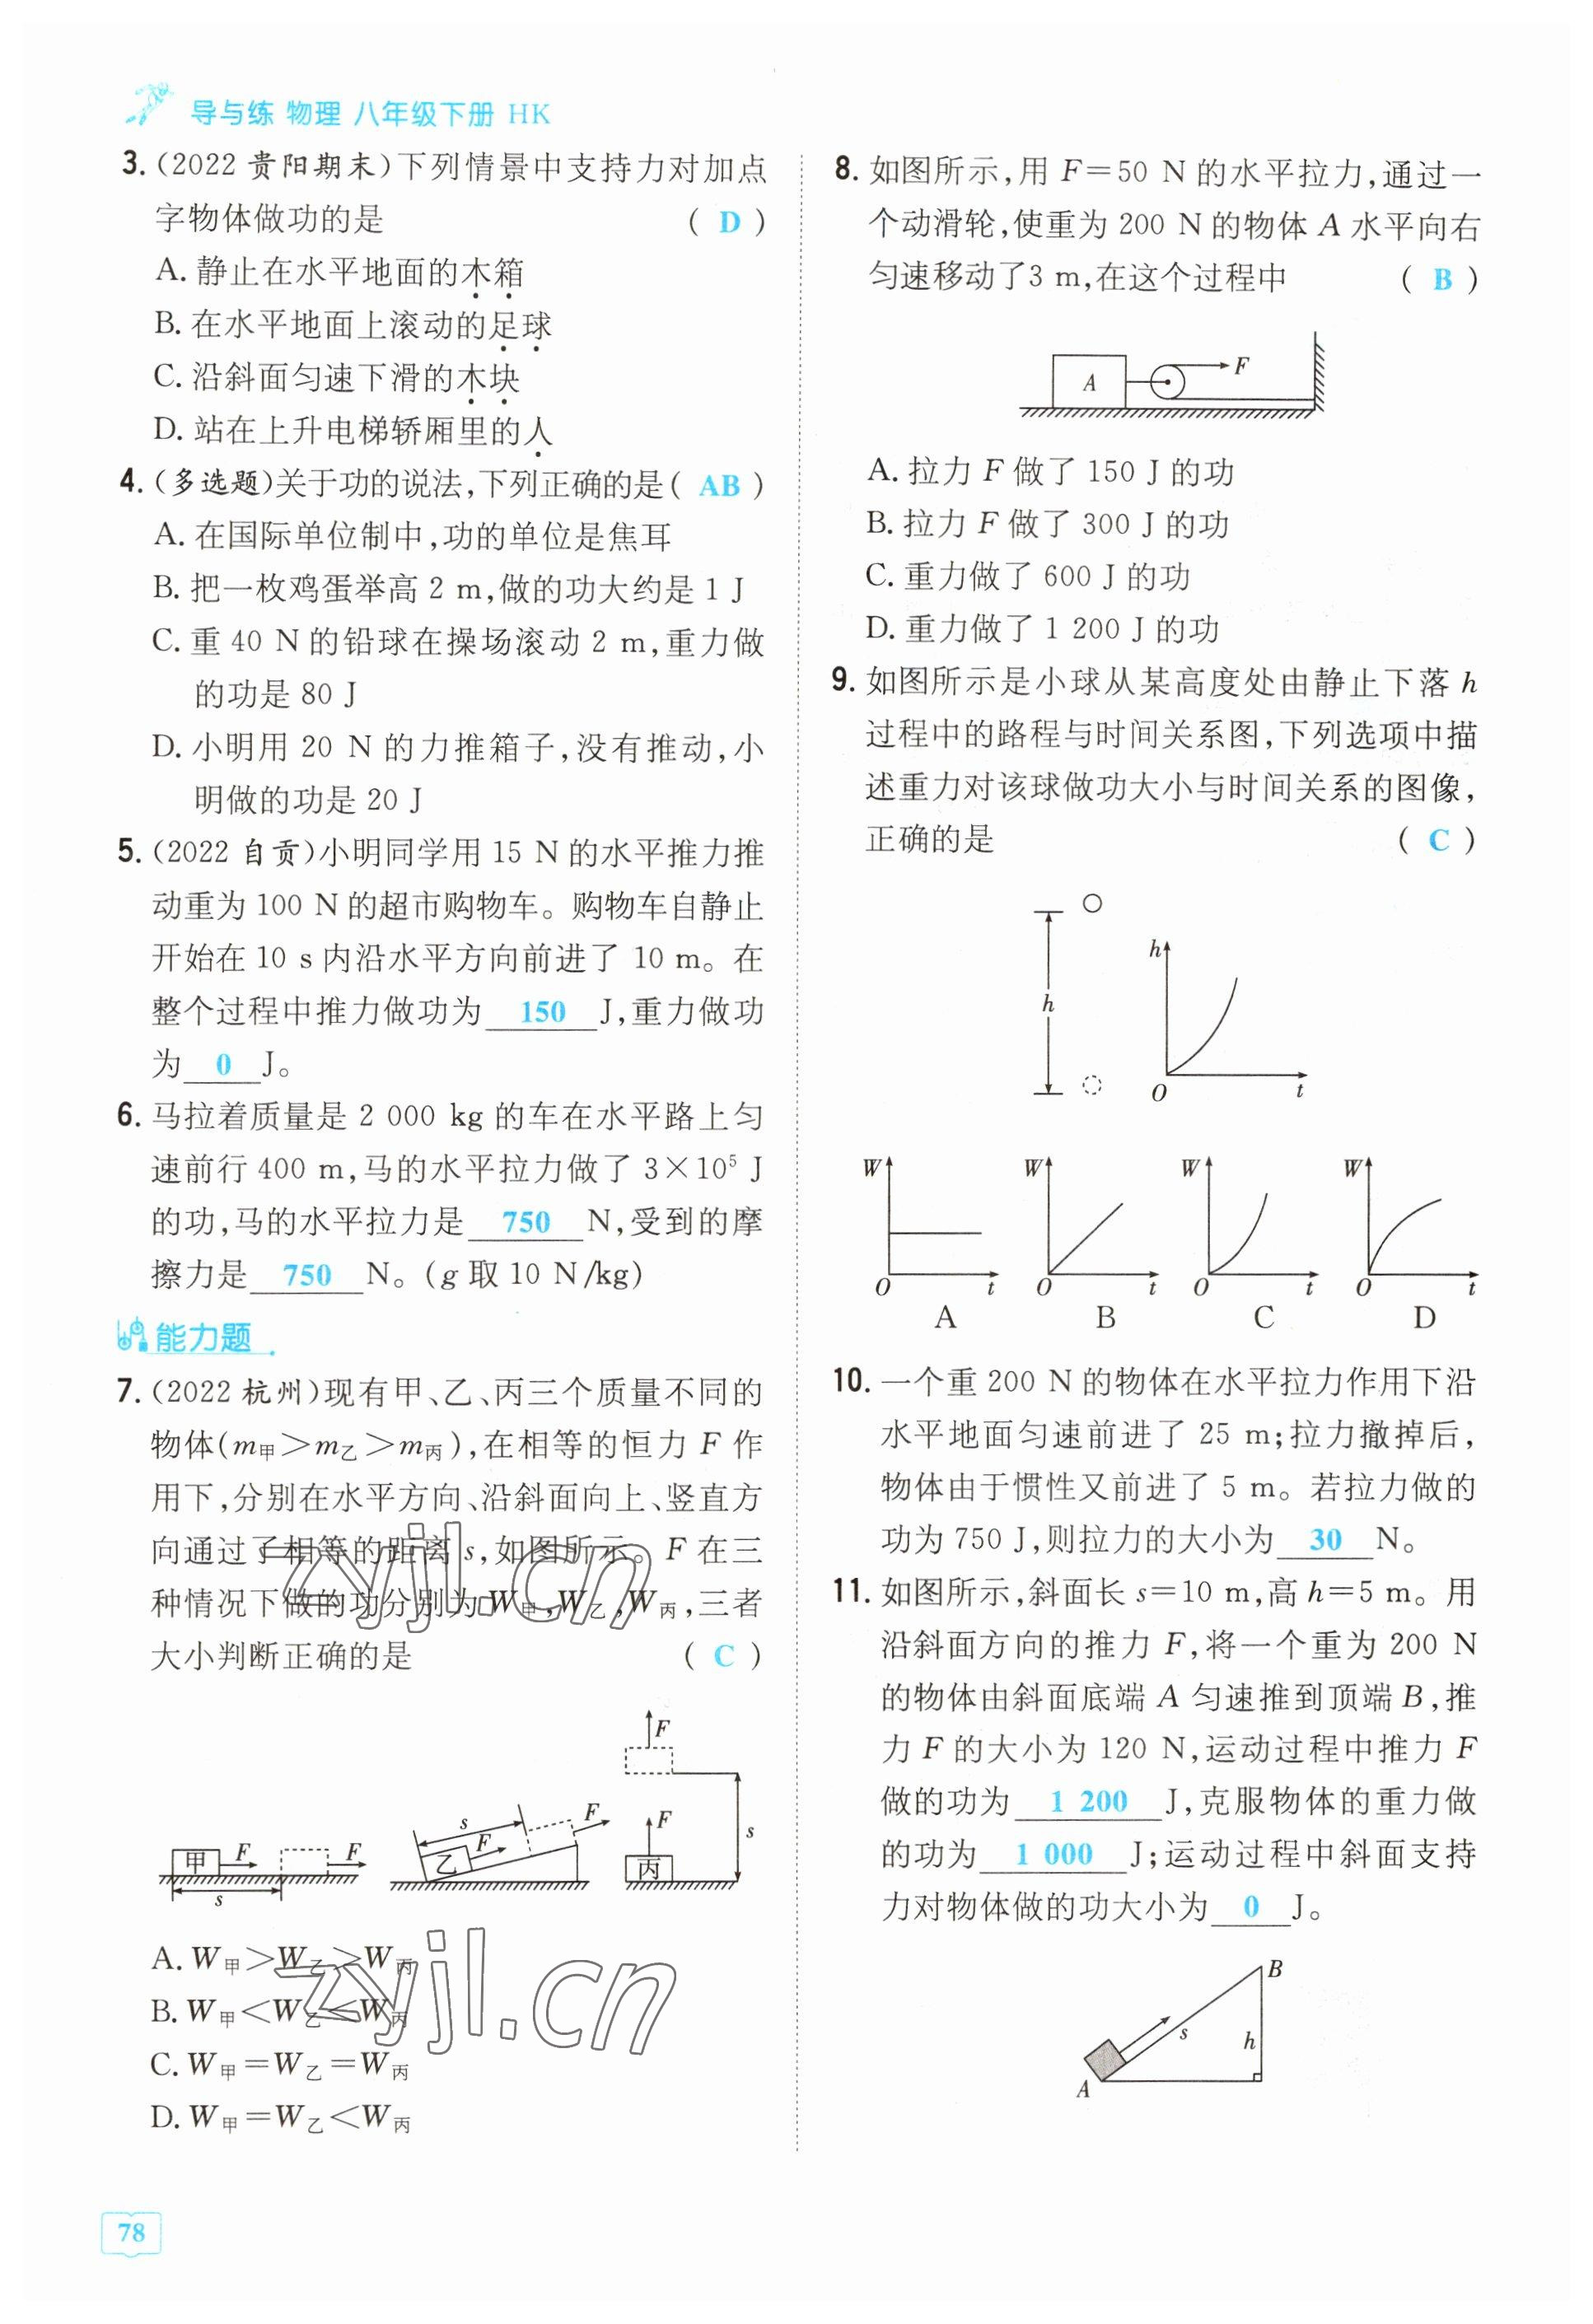 导与练 物理 八年级下册 HK
3.(2022 贵阳期末)下列情景中支持力对加点
字物体做功的是 ( D )
A. 静止在水平地面的木箱
B. 在水平地面上滚动的足球
C. 沿斜面匀速下滑的木块
D. 站在上升电梯轿厢里的人
4.(多选题)关于功的说法,下列正确的是( AB )
A. 在国际单位制中,功的单位是焦耳
B. 把一枚鸡蛋举高 2 m,做的功大约是 1 J
C. 重 40 N 的铅球在操场滚动 2 m,重力做
的功是 80 J
D. 小明用 20 N 的力推箱子,没有推动,小
明做的功是 20 J
5.(2022 自贡)小明同学用 15 N 的水平推力推
动重为 100 N 的超市购物车。购物车自静止
开始在 10 s 内沿水平方向前进了 10 m。在
整个过程中推力做功为 150 J,重力做功
为 0 J。
6. 马拉着质量是 2 000 kg 的车在水平路上匀
速前行 400 m,马的水平拉力做了 3×10⁵ J
的功,马的水平拉力是 750 N,受到的摩
擦力是 750 N。(g 取 10 N/kg)
能力题
7.(2022 杭州)现有甲、乙、丙三个质量不同的
物体(m甲>m乙>m丙),在相等的恒力 F 作
用下,分别在水平方向、沿斜面向上、竖直方
向通过了相等的距离 s,如图所示。F 在三
种情况下做的功分别为 W甲,W乙,W丙,三者
大小判断正确的是 ( C )
甲 F F s
乙 F F s
丙 F F s
A. W甲>W乙>W丙
B. W甲<W乙<W丙
C. W甲=W乙=W丙
D. W甲=W乙<W丙
zyjl.cn
zyjl.cn
78
8. 如图所示,用 F=50 N 的水平拉力,通过一
个动滑轮,使重为 200 N 的物体 A 水平向右
匀速移动了3 m,在这个过程中 ( B )
A F
A. 拉力 F 做了 150 J 的功
B. 拉力 F 做了 300 J 的功
C. 重力做了 600 J 的功
D. 重力做了 1 200 J 的功
9. 如图所示是小球从某高度处由静止下落 h
过程中的路程与时间关系图,下列选项中描
述重力对该球做功大小与时间关系的图像,
正确的是 ( C )
h h O t
W W W W
O t O t O t O t
A B C D
10. 一个重 200 N 的物体在水平拉力作用下沿
水平地面匀速前进了 25 m;拉力撤掉后,
物体由于惯性又前进了 5 m。若拉力做的
功为 750 J,则拉力的大小为 30 N。
11. 如图所示,斜面长 s=10 m,高 h=5 m。用
沿斜面方向的推力 F,将一个重为 200 N
的物体由斜面底端 A 匀速推到顶端 B,推
力 F 的大小为 120 N,运动过程中推力 F
做的功为 1 200 J,克服物体的重力做
的功为 1 000 J;运动过程中斜面支持
力对物体做的功大小为 0 J。
B
s h
A